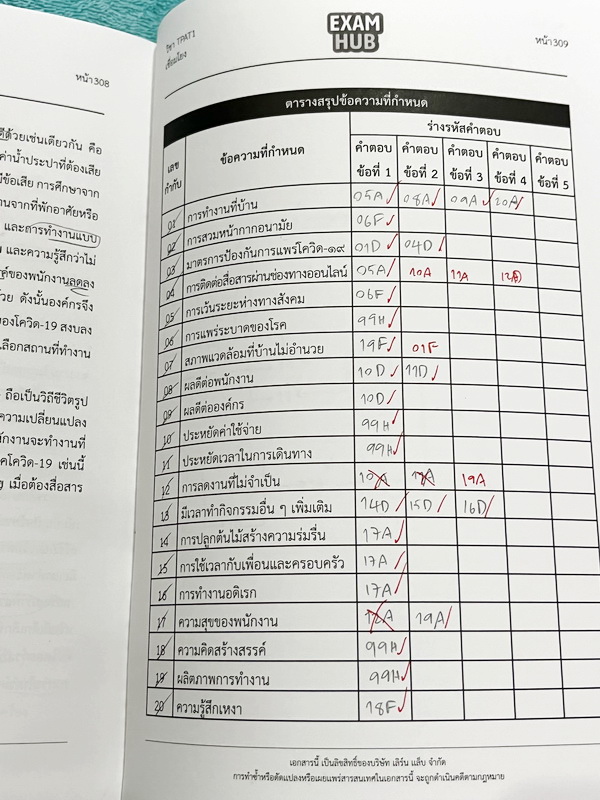 EXAM
HUB
วิชา TPAT1
เชื่อมโยง
หน้า309
หน้า308
ด้วยเช่นเดียวกัน คือ
ค่าน้ำประปาที่ต้องเสีย
มีข้อเสีย การศึกษาจาก
านจากที่พักอาศัยหรือ
และการทำงานแบบ
และความรู้สึกว่าไม่
ของพนักงานลดลง
ดังนั้นองค์กรจึง
ของโควิด-19 สงบลง
เลือกสถานที่ทำงาน
ถือเป็นวิถีชีวิตรูป
ความเปลี่ยนแปลง
นักงานจะทำงานที่
คโควิด-19 เช่นนี้
เมื่อต้องสื่อสาร
ตารางสรุปข้อความที่กำหนด
เลขกำกับ ข้อความที่กำหนด ร่างรหัสคำตอบ
คำตอบข้อที่ 1 คำตอบข้อที่ 2 คำตอบข้อที่ 3 คำตอบข้อที่ 4 คำตอบข้อที่ 5
01 การทำงานที่บ้าน 05A 08A 09A 20A
02 การสวมหน้ากากอนามัย 06F
03 มาตรการป้องกันการแพร่โควิด-๑๙ 01D 04D
04 การติดต่อสื่อสารผ่านช่องทางออนไลน์ 05A 10A 11A
05 การเว้นระยะห่างทางสังคม 06F
06 การแพร่ระบาดของโรค 99H
07 สภาพแวดล้อมที่บ้านไม่อำนวย 19F 01F
08 ผลดีต่อพนักงาน 10D 11D
09 ผลดีต่อองค์กร 10D
10 ประหยัดค่าใช้จ่าย 99H
11 ประหยัดเวลาในการเดินทาง 99H
12 การลดงานที่ไม่จำเป็น 19A
13 มีเวลาทำกิจกรรมอื่น ๆ เพิ่มเติม 14D 15D 16D
14 การปลูกต้นไม้สร้างความร่มรื่น 17A
15 การใช้เวลากับเพื่อนและครอบครัว 17A
16 การทำงานอดิเรก 17A
17 ความสุขของพนักงาน 19A
18 ความคิดสร้างสรรค์ 99H
19 ผลิตภาพการทำงาน 99H
20 ความรู้สึกเหงา 18F
เอกสารนี้ เป็นลิขสิทธิ์ของบริษัท เลิร์น แล็บ จำกัด
การทำซ้ำหรือดัดแปลงหรือเผยแพร่สารสนเทศในเอกสารนี้ จะถูกดำเนินคดีตามกฎหมาย